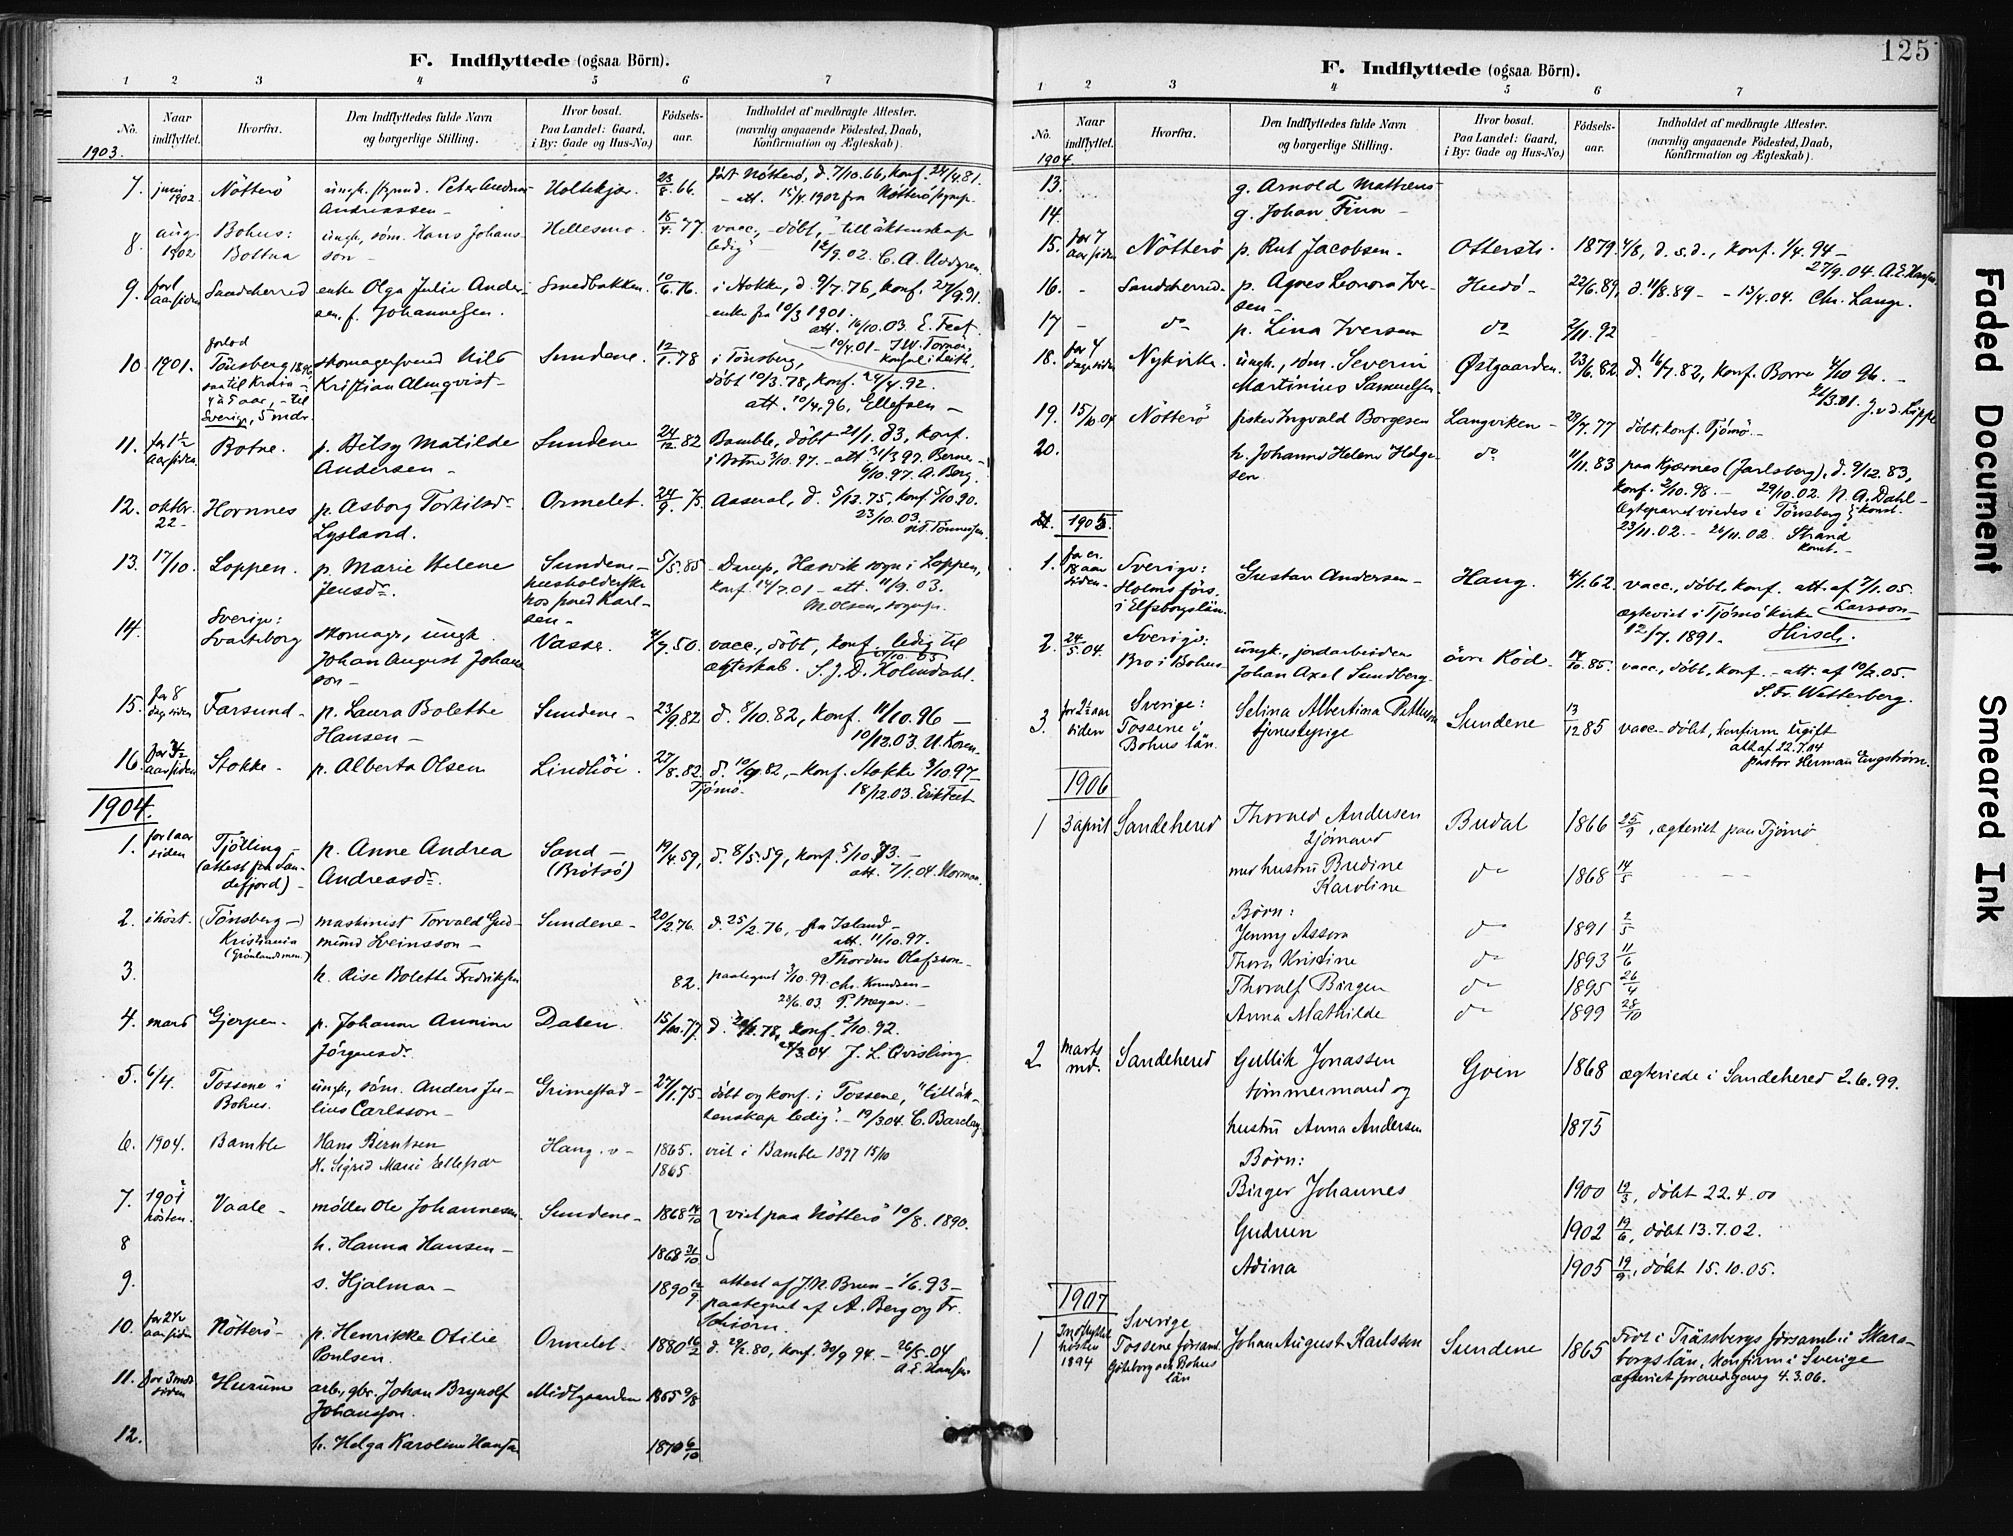 125
F. Indflyttede (ogsaa Börn).
1 2 3 4 5 6 7
No. Naar indflyttet. Hvorfra. Den Indflyttedes fulde Navn og borgerlige Stilling. Hvor bosat. Paa Landet: Gaard, i By: Gade og Hus-No.) Födsels-aar. Indholdet af medbragte Attester. (navnlig angaaende Födested, Daab, Konfirmation og Ægteskab).
1903.
7. juni 1902 Nötterö Peter Andreas Holtekjær 23/8 66. født Nötterö, d. 7/10.66, konf. 24/4.81.
Andreassen - att. 15/4.1902 fra Nötterö
8. aug. 1902 Bohus: Bottna ungk. søm. Hans Johansson - Hellesmo 15/4. 77. vacc., döbt, "till äktenskap
ledig" - 12/9.02. C. A.
9. for 1 aar siden Sandeherred enke Olga Julie Andersen, f. Johannesen. Smedbakken. 10/6.76. i Stokke, d. 9/7.76, konf. 27/9.91.
enke fra 10/3 1901.
att. 16/10.03. E. Feet.
10. 1901. forlod Tönsberg 1896, Nils Sundene. 12/1.78 i Tönsberg,
Kristian Almqvist - döbt 10/3.78, konf. 24/4.92.
Sverige, 5 mdr. att. 10/4.96, Ellefsen -
11. for 1 1/2 aar siden. Botne. p. Betsy Matilde Sundene 24/12 82 Bamble, döbt 21/1.83, konf.
Andersen - i Botne 3/10.97. - att. 31/3 97. Berner -
6/10.97. A. Berg.
12. oktbr. 22 - Hornnes p. Asborg Torkilsdr Ormelet. 24/9. 75 Aaseral, d. 5/12.75, konf. 5/10.90.
Lysland. 23/10.03.
13. 17/10. Loppen. p. Marie Helene Sundene - 5/5.85 Hasvik sogn i Loppen,
Jensdr. husholderske konf. 14/7.01 - att. 11/9.03.
hos Karlsen - M. Olsen, sognepr.
14. Sverige: Svarteborg skomager, ungk. Johan August Johansson - Vasser. 4/7.50. vacc., döbt, konf. ledig til
ægteskab. S. J. D. Holmdahl.
15. for 8 dage siden Farsund - p. Laura Bolette Hansen - Sundene - 23/9.82 d. 8/10.82, konf. 11/10.96 -
10/12.03. N.
16. for 3 1/2 aar siden Stokke - p. Alberta Olsen Lindhöi. 27/8.82. Tjömö. d. 10/9 82, - konf. Stokke 3/10.97 -
18/12.03. Erik Feet
1904.
1. for 1 aar siden Tjölling - (attest fra Sandefjord) - p. Anne Andrea Andreasdr. Sand - (Brötsö) 19/4.59, d. 8/5.59, konf. 5/10.73. -
att. 7/1.04. Norman.
2. i höst. (Tönsberg -) Kristiania (Grönlands men.) maskinist Torvald Gudmund Sveinsson - Sundene - 20/2.76. d. 25/2.76, - fra Island -
att. 11/10.97.
Thordur Olafsson -
3. h. Rise Bolette Fredriksen 82. paategnet 3/10.99. Chr. Knudsen -
23/6.03. P. Meyer. -
4. mars Gjerpen. p. Johanne Annine Jörgensdr. Dalen. 15/10.77. konf. 2/10.92.
24/3.04 J. L. Qvisling.
5. 6/4. Tossene i Bohus. ungk., söm. Anders Julius Carlsson - Grimestad - 27/1.75. döbt og konf. i Tossene, "till äktenskap ledig". - 19/3.04. C. Barclay.
6. 1904. Bamble Hans Berntsen Haug. v - 1865. viet i Bamble 1897 15/10
H. Sigrid Marie Ellefsdr 1865.
7. 1901 hösten. Vaale - möller Ole Johannesen. Sundene - 1868 14/10 viet paa Nötterö 10/8. 1890.
8 h. Hanna Hansen - 1868 31/10
9. s. Hjalmar - 1890 12/9. attest af J. N. Brun - 1/6.93 -
paategnet af A. Berg og Fr. Schiörn.
10. for 2 1/2 aar siden Nötterö - p. Henrikke Otilie Poulsen. Ormelet. 1880 16/2 d. 29/2.80, konf. 30/9 94. - 26/5.04
A. E. Hansen
11. for 3 mdr siden Hurum arb. gbr. Johan Brynolf Johansson. Midtgaarden 1865 9/8
12. h. Helga Karoline Hansen 1870 6/10
F. Indflyttede (ogsaa Börn).
1 2 3 4 5 6 7
No. Naar indflyttet. Hvorfra. Den Indflyttedes fulde Navn og borgerlige Stilling. Hvor bosat. Paa Landet: Gaard, i By: Gade og Hus-No.) Födsels-aar. Indholdet af medbragte Attester. (navnlig angaaende Födested, Daab, Konfirmation og Ægteskab).
1904.
13. g. Arnold Matheus
14. g. Johan Finn -
15. for 7 aar siden Nötterö p. Rut Jacobsen. Otterstı. 1879. 4/8, d. s. d., konf. 1/4.94 -
27/9.04. A. E. Hansen.
16. - Sandeherred. p. Agnes Leonora Iversen - Hudö - 22/6.89, d. 11/8.89 - - 13/4.04. Chr. Lange.
17 - do p. Lina Iversen do 2/11.92 -
18. for 4 dage siden Nykirke. ungk., søm. Severin Martinius Samuelsen. Østgaarden. 23/6.82. d. 16/7.82, konf. Borre 4/10 96. -
19. 15/10.04 Nötterö fisker Ingvald Borgesen Langviken - 29/7.77 döbt, konf. Tjömö. -
20. h. Johanne Helene Helgesen. do 11/11.83 paa Kjærnes (Jarlsberg), d. 9/12.83,
konf. 2/10.98. - 29/10.02. N. A. Dahl -
Ægteparret viedes i Tönsberg konst.
23/11.02. - 26/11.02. Strand konst. -
21. 1905.
1. for ca. 18 aar siden - Sverige: Holms förs. i Elfsborgslän. Gustav Andersen - Haug. 4/1.62. vacc., döbt, konf. att. af 7/1.05. Larsson -
ægteviet i Tjömö kirke
12/7. 1891. - Hirsch.
2. 24/5.04. Sverige: Bro i Bohus - ungk., jordarbeider Johan Axel Sundberg. övre Röd - 14/10.85. vacc., döbt, konf. - att. af 10/2.05.
S. Fr. Wetterberg.
3. for 2 1/2 aar siden Sverige: Tossene i Bohus län. Selina Albertina tjenestepige Sundene 13/12 85 vacc. döbt, konfirm ugift
att af 22.7.04
pastor Herman Engström.
1906
1 3 april Sandehered Thorvald Andersen Sjömand Budal 1866 25/9, ægteviet paa Tjömö
med hustru Budine Karoline do 1868 14/5
Børn:
Jenny Assora do 1891 2/5
Thora Kristine do 1893 11/6
Thoralf Birger do 1895 26/4
Anna Mathilde do 1899 28/10
2 Marts md. Sandehered Gullik Jonassen Goen 1868 ægteviede i Sandehered 2.6.99.
tömmermand og
hustru Anna Andersen 1875
Børn:
Birger Johannes 1900 19/3, döbt 22.4.00
Gudrun 1902 19/6, döbt 13.7.02.
Adina 1905 19/9, döbt 15.10.05.
1907
1 Indflyttet hösten 1894 Sverige Tossene församl. Göteborg och Bohus län Johan August Karlsson Sundene 1865 Født i Träsbergs församl. i Skaraborgs län, konfirm i Sverige
ægteviet for andr gang 4.3.06.
Faded Document
Smeared Ink